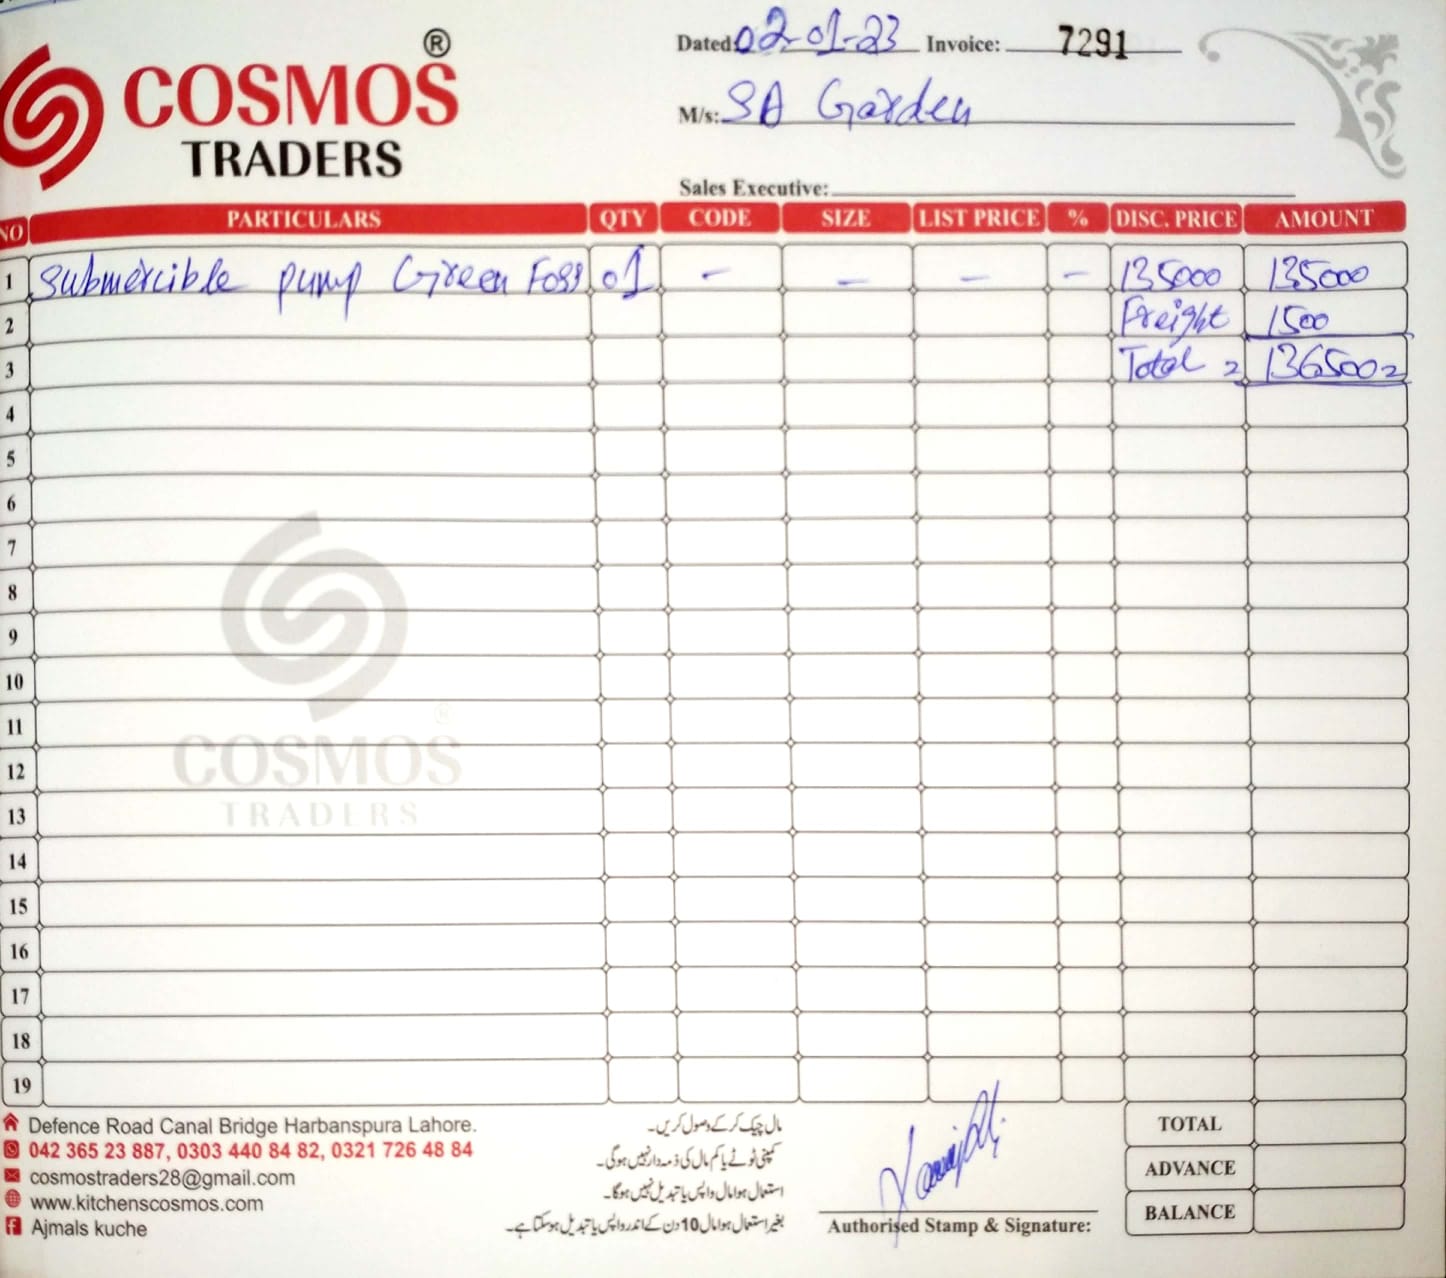 COSMOS ®
TRADERS
Dated: 02-01-23 Invoice: 7291
M/s: SA Garden
Sales Executive:
NO PARTICULARS QTY CODE SIZE LIST PRICE % DISC. PRICE AMOUNT
1 Submercible pump Green Foss 01 - - - - 135000 135000
2 Freight 1500
3 Total = 136500=
4
5
6
7
8
9
10
11
12
13
14
15
16
17
18
19
COSMOS ®
TRADERS
Defence Road Canal Bridge Harbanspura Lahore.
042 365 23 887, 0303 440 84 82, 0321 726 48 84
cosmostraders28@gmail.com
www.kitchenscosmos.com
Ajmals kuche
مال چیک کر کے وصول کریں۔
کمپنی ٹوٹے یا کم مال کی ذمہ دار نہیں ہوگی۔
استعمال ہوا مال واپس یا تبدیل نہیں ہوگا۔
بغیر استعمال ہوا مال 10 دن کے اندر واپس یا تبدیل ہو سکتا ہے۔
Authorised Stamp & Signature:
TOTAL
ADVANCE
BALANCE